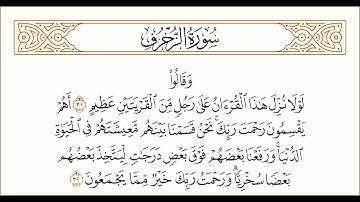 سُورَةُ الزُّخْرُفِ
وَقَالُوا۟
لَوْلَا نُزِّلَ هَٰذَا ٱلْقُرْءَانُ عَلَىٰ رَجُلٍ مِّنَ ٱلْقَرْيَتَيْنِ عَظِيمٍ ٣١ أَهُمْ
يَقْسِمُونَ رَحْمَتَ رَبِّكَ ۚ نَحْنُ قَسَمْنَا بَيْنَهُم مَّعِيشَتَهُمْ فِى ٱلْحَيَوٰةِ
ٱلدُّنْيَا ۚ وَرَفَعْنَا بَعْضَهُمْ فَوْقَ بَعْضٍ دَرَجَٰتٍ لِّيَتَّخِذَ بَعْضُهُم
بَعْضًا سُخْرِيًّا ۗ وَرَحْمَتُ رَبِّكَ خَيْرٌ مِّمَّا يَجْمَعُونَ ٣٢